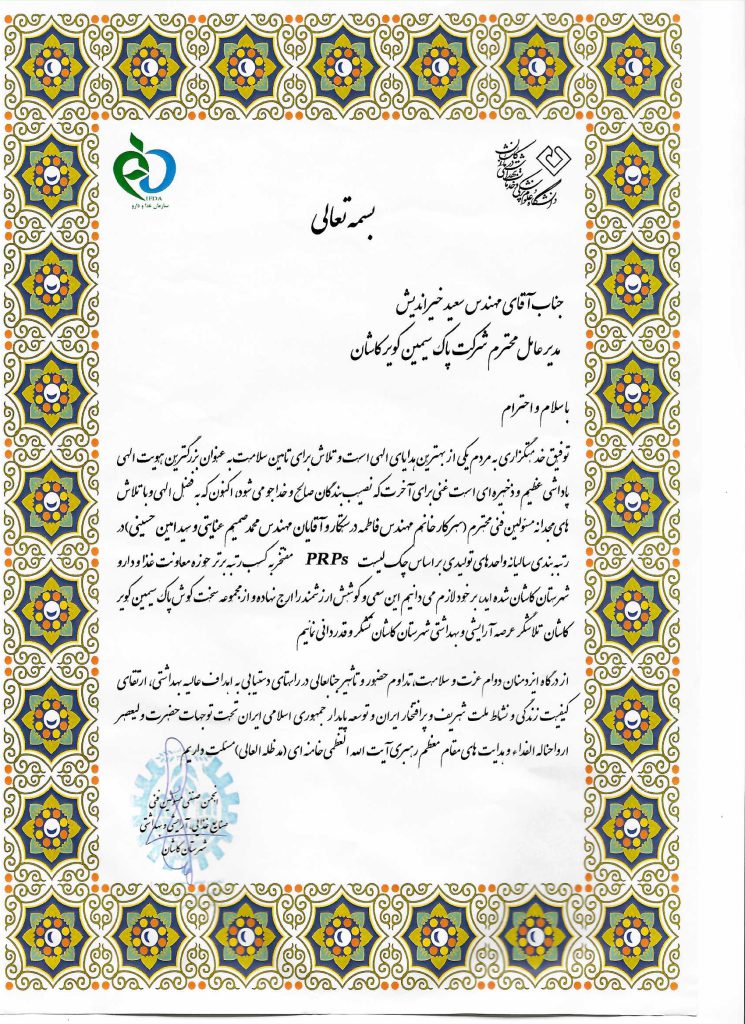 دانشگاه علوم پزشکی و خدمات بهداشتی درمانی کاشان
IFDA
سازمان غذا و دارو
بسمه تعالی
جناب آقای مهندس سعید خیراندیش
مدیر عامل محترم شرکت پاک سیمین کویر کاشان
با سلام و احترام
توفیق خدمتگزاری به مردم یکی از بهترین هدایای الهی است و تلاش برای تامین سلامت به عنوان بزرگترین موهبت الهی
پاداشی عظیم و ذخیره ای است غنی برای آخرت که نصیب بندگان صالح و خداجو می شود، اکنون که به فضل الهی و با تلاش
های مجدانه مسئولین فنی محترم (سرکار خانم مهندس فاطمه درستکار و آقایان مهندس محمد صمیم عنایتی و سید امین حسینی) در
رتبه بندی سالیانه واحدهای تولیدی بر اساس چک لیست PRPs مفتخر به کسب رتبه برتر حوزه معاونت غذا و دارو
شهرستان کاشان شده اید، بر خود لازم می دانیم این سعی و کوشش ارزشمند را ارج نهاده و از مجموعه سخت کوش پاک سیمین کویر
کاشان تلاشگر عرصه آرایشی و بهداشتی شهرستان کاشان تشکر و قدردانی نمائیم
از درگاه ایزد منان دوام عزت و سلامت، تداوم حضور و تأثیر جنابعالی در راستای دستیابی به اهداف عالیه بهداشتی، ارتقای
کیفیت زندگی و نشاط ملت شریف و پرافتخار ایران و توسعه پایدار جمهوری اسلامی ایران تحت توجهات حضرت ولیعصر
ارواحناله الفداء و هدایت های مقام معظم رهبری آیت الله العظمی خامنه ای (مد ظله العالی) مسئلت داریم
انجمن صنفی مسئولین فنی
صنایع غذایی، آرایشی و بهداشتی
شهرستان کاشان